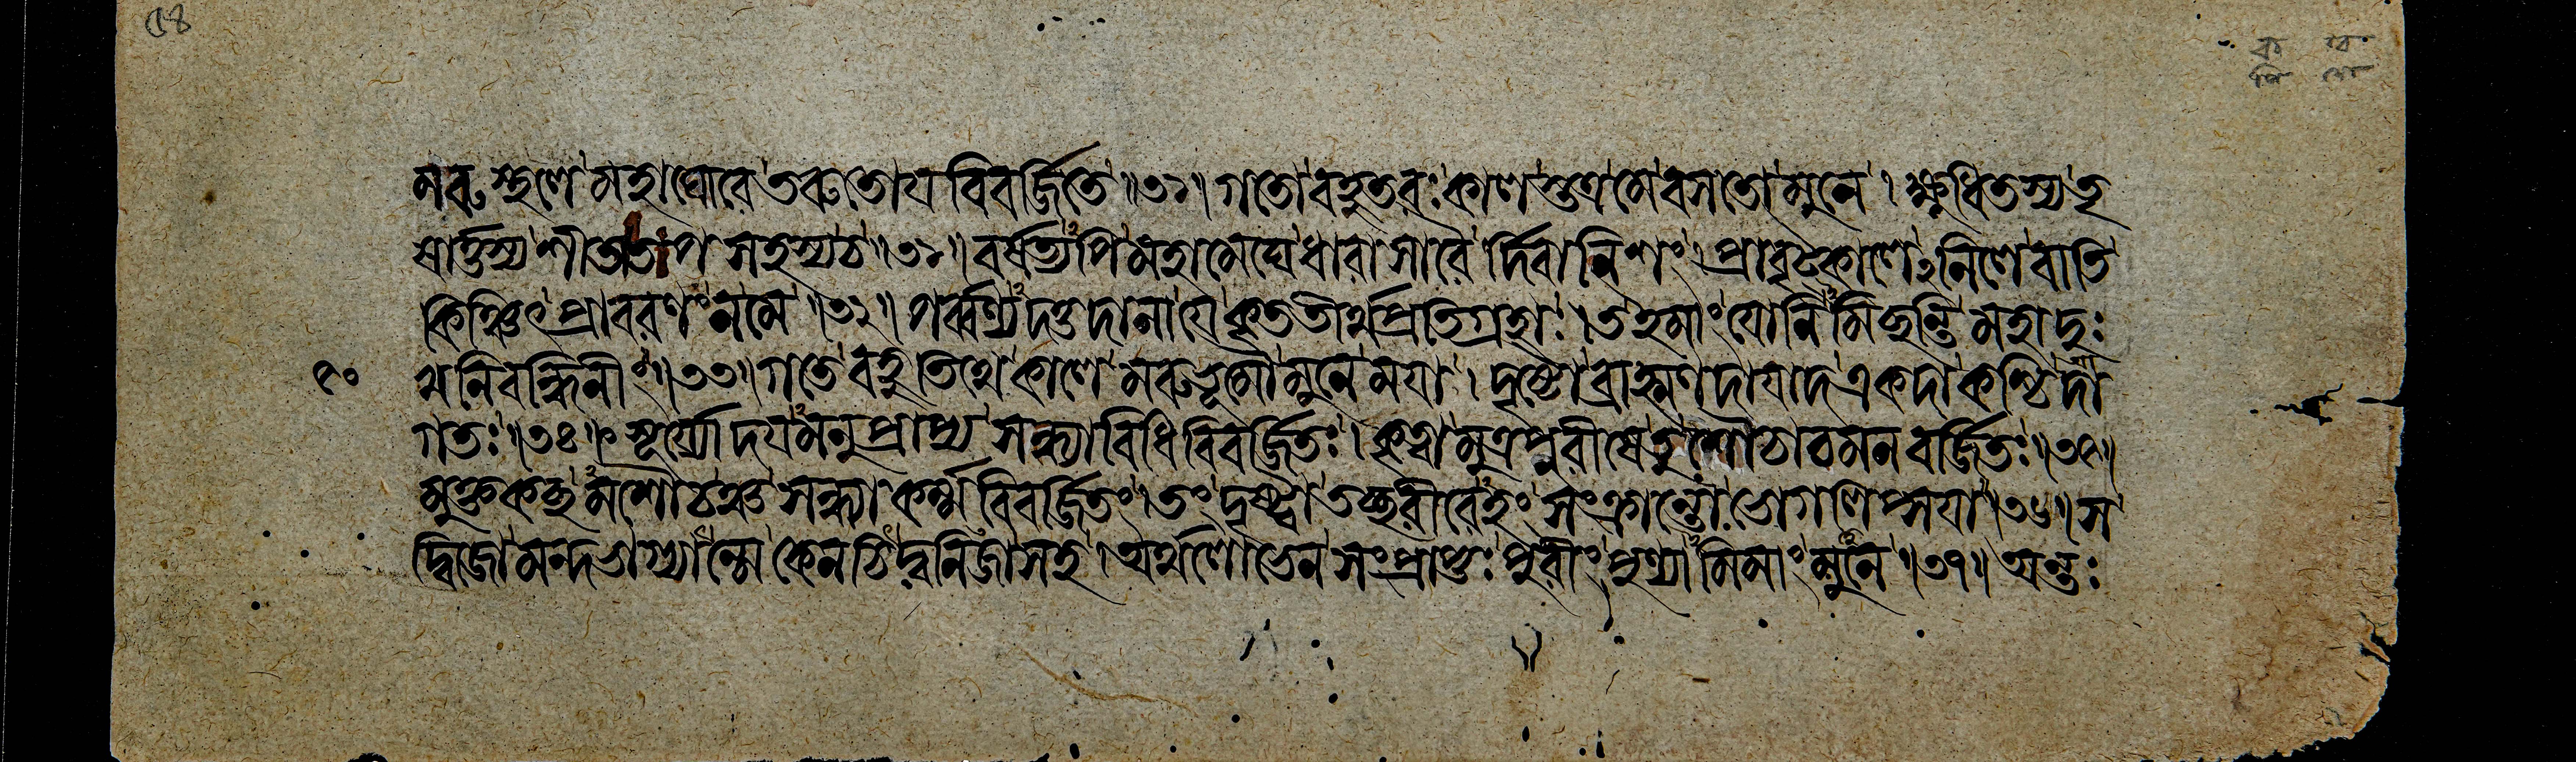 ५४
মরুস্থলে মহাঘোরে তরুতোয়বিবর্জ্জিতে ॥৩১॥ গতো বহুতরঃ কালস্তত্র মে বসতো মুনে । ক্ষুধিতস্য তৃ
ষার্ত্তস্য শীততাপসহস্য চ ॥৩১॥ বর্ষত্যপি মহামেঘে ধারাসারৈর্দিবানিশং । প্রাবৃট্কালেঽনিলে বাতি
কিঞ্চিৎ প্রাবরণং ন মে ॥৩২॥ পর্ব্বণ্যদত্তদানা যে কৃততীর্থপ্রতিগ্রহাঃ । ত ইমাং যোনিমিচ্ছন্তি মহাদুঃ
খনিবন্ধিনীং ॥৩৩॥ গতে বহুতিথে কালে মরুভূমৌ মুনে ময়া । দৃষ্টো ব্রাহ্মণদায়াদ একদা কশ্চিদা
গতঃ ॥৩৪॥ সূর্য্যোদয়মনুপ্রাপ্য সন্ধ্যাবিধিবিবর্জ্জিতঃ । কৃত্বা মুত্রপুরীষে তু শৌচাচমনবর্জ্জিতঃ ॥৩৫॥
মুক্তকচ্ছমশৌচঞ্চ সন্ধ্যাকর্ম্মবিবর্জ্জিতং । তং দৃষ্ট্বা তচ্ছরীরেহং সংক্রান্তো ভোগলিপ্সয়া ॥৩৬॥ স
দ্বিজো মন্দভাগ্যান্মে কেনচিদ্বনিজা সহ । অর্থলোভেন সংপ্রাপ্তঃ পুরীং পুণ্যামিমাং মুনে ॥৩৭॥ অন্তঃ